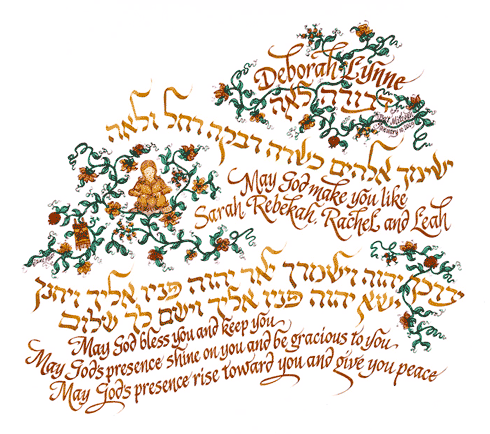 Deborah Lynne
דבורה לאה
ישימך אלהים כשרה רבקה רחל ולאה
May God make you like
Sarah, Rebekah, Rachel, and Leah
יברכך יהוה וישמרך יאר יהוה פניו אליך ויחנך
ישא יהוה פניו אליך וישם לך שלום
May God bless you and keep you
May God's presence shine on you and be gracious to you
May God's presence rise toward you and give you peace